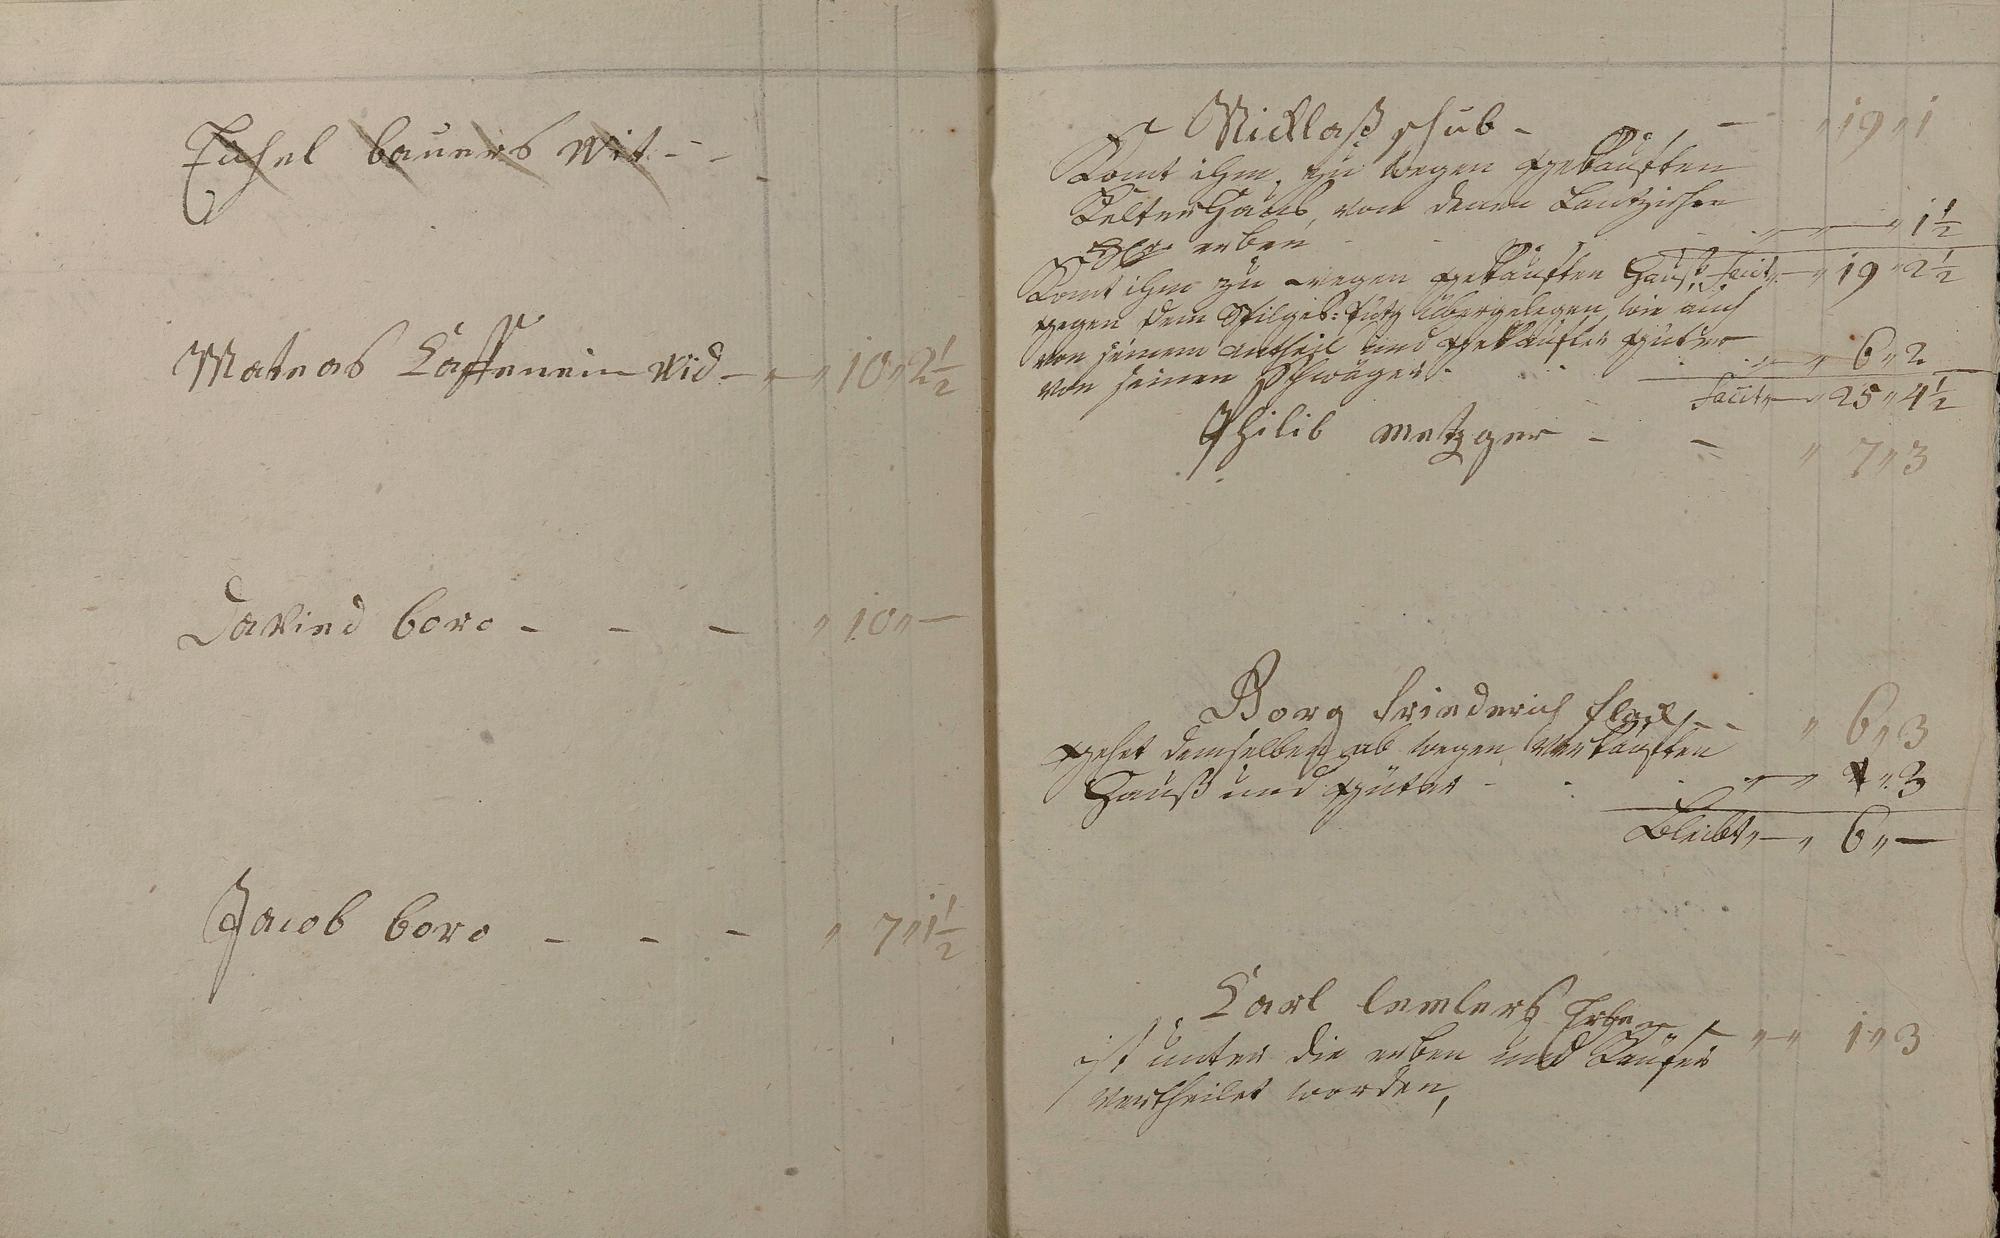 bauers wit - -
Mateas Caffenein wid - " - " 10 " 2 1/2
Davied boro - - - " 10 " -
Jacob boro - - - " 7 " 1 1/2
Nicklaß schub - - " 19 " 1
Komt ihm zu wegen gekauften
Kelter Hauß, von denen
erben " - " 1 1/2
Komt ihm zu wegen gekauften Hauß, facit " - " 19 " 2 1/2
gegen dem übergelegen, wie auch
von seinem antheil und gekaufter güter
von seinen Schwäger. " - " 6 " 2
facit " - " 25 " 4 1/2
Philib metzger - - " 7 " 3
Borg friederich flack - - " 6 " 3
gehet demselben ab wegen verkauften
Hauß und güter - " - " " 3
Bleibt " - " 6 " -
Carl lemlers Erben - " - " 1 " 3
ist unter die erben und Käufer
vertheilet worden,